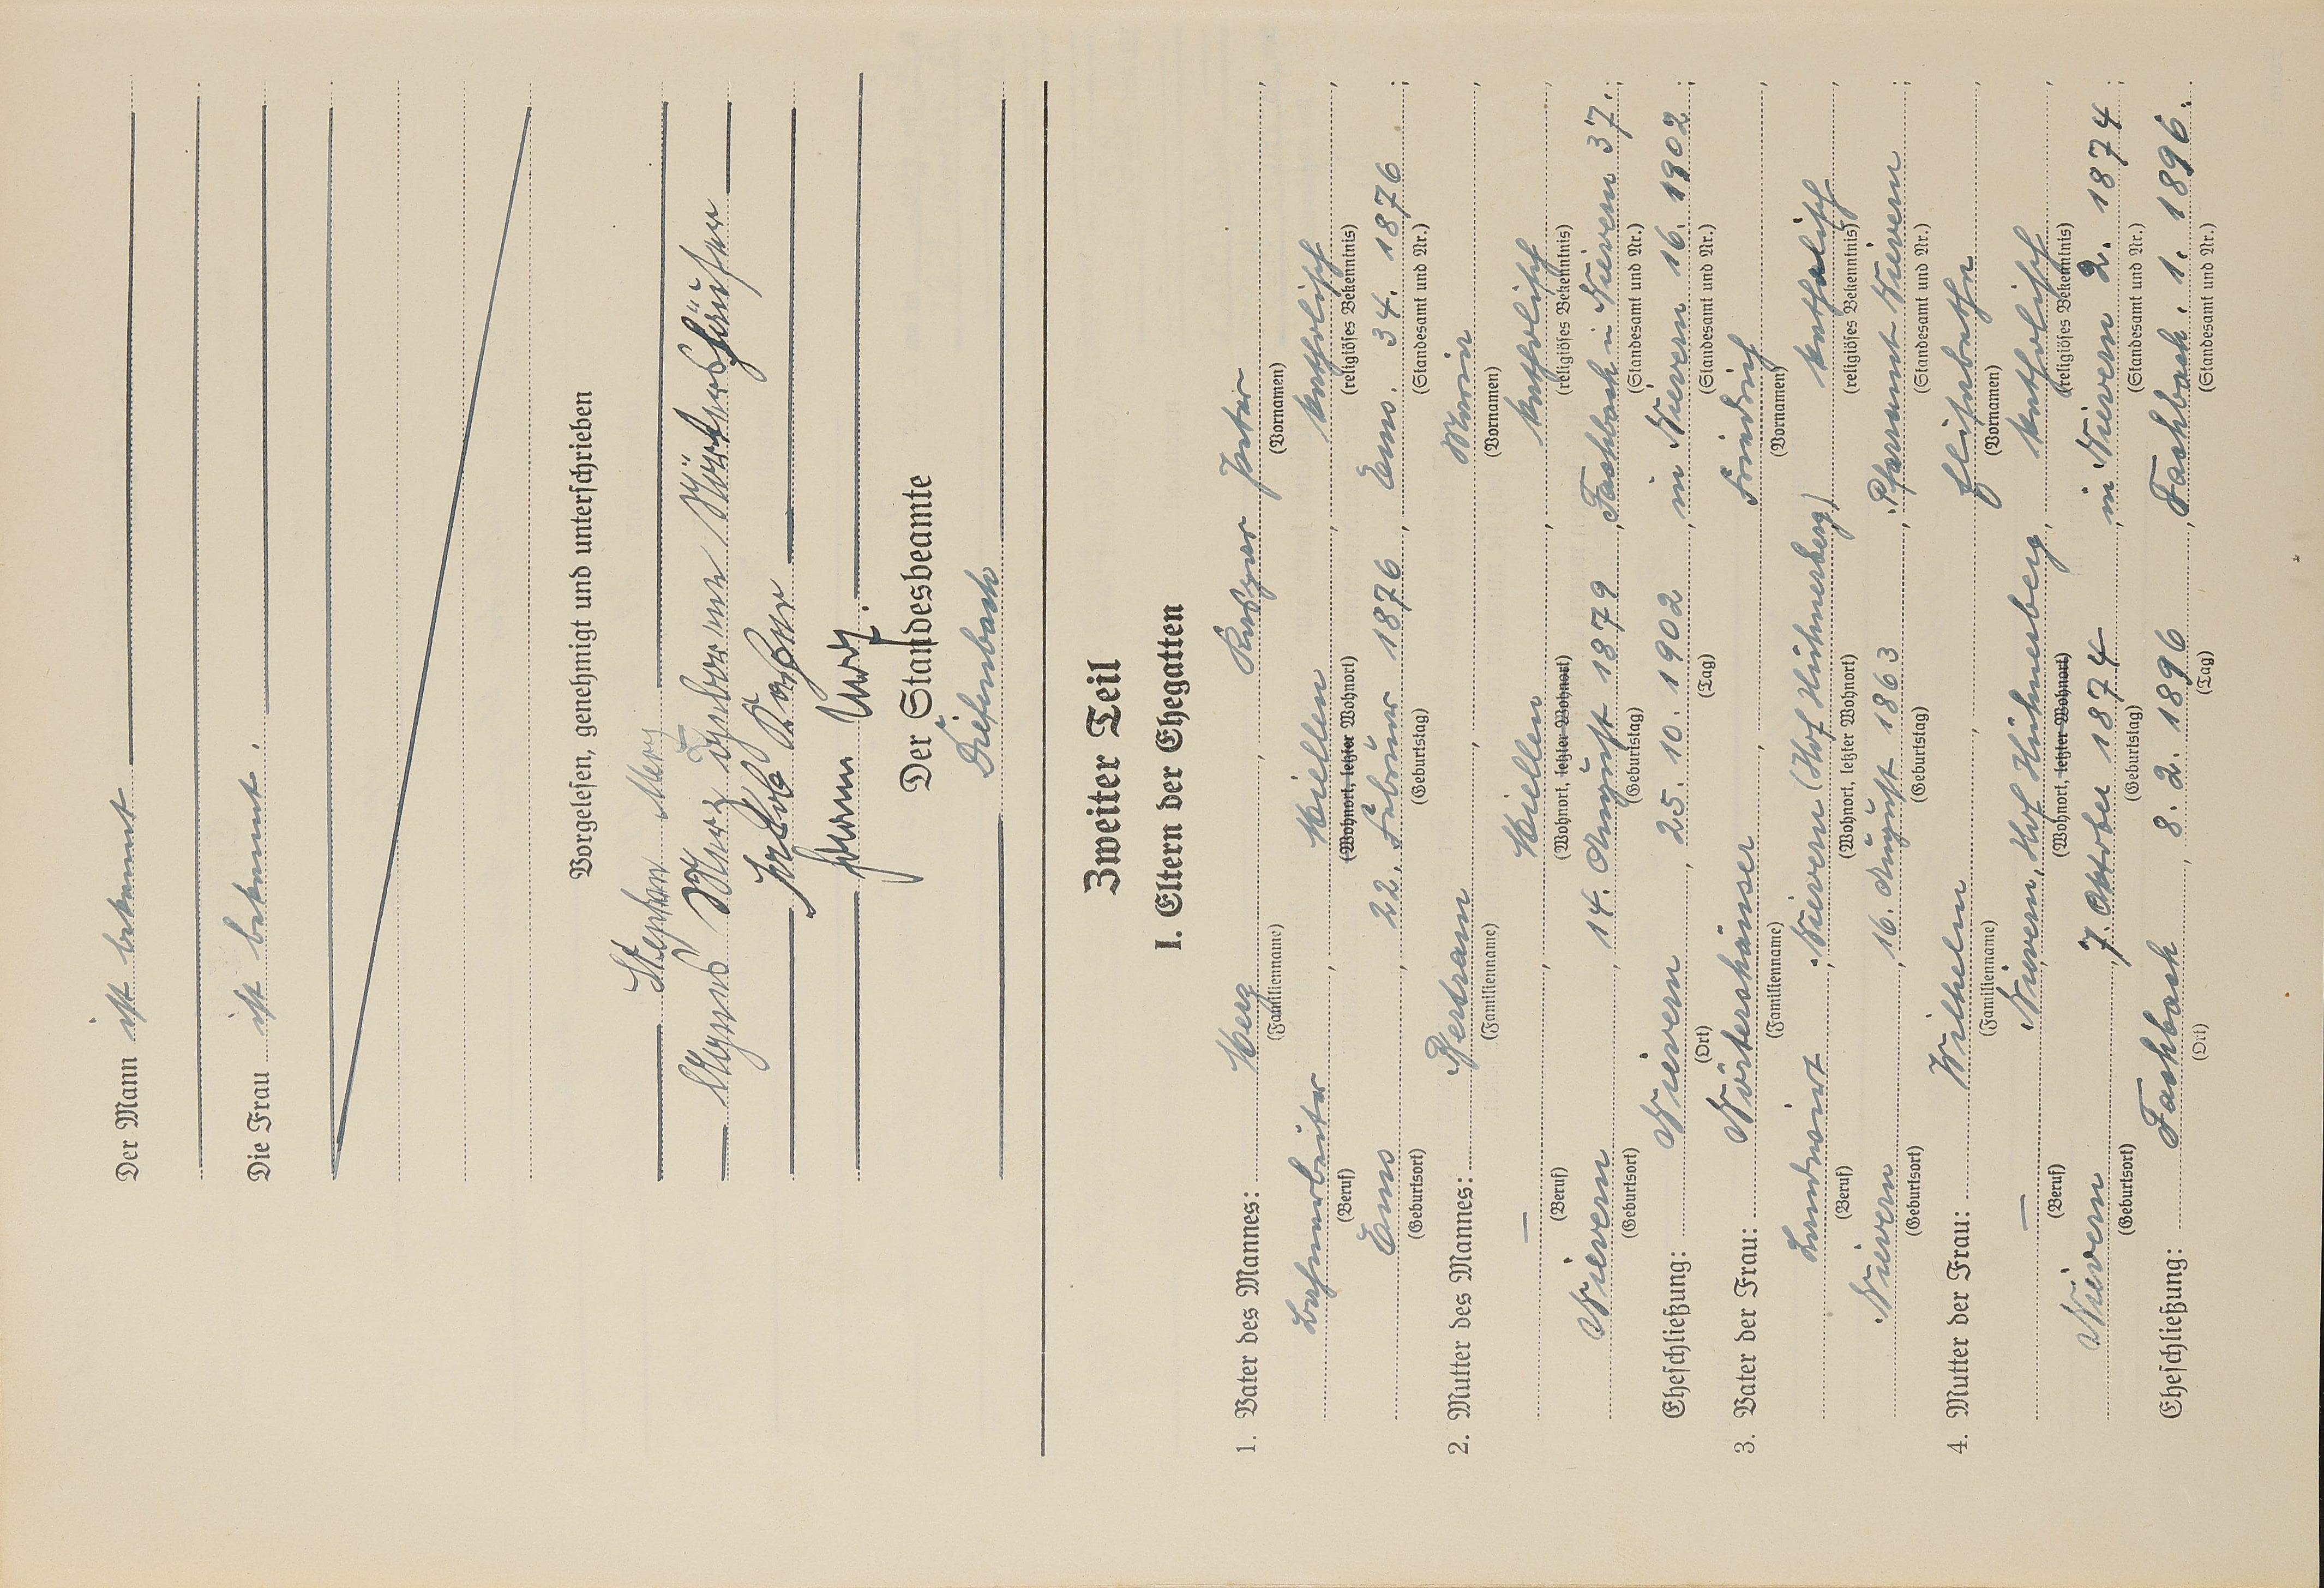 Der Mann ist bekannt
Die Frau ist bekannt.
Vorgelesen, genehmigt und unterschrieben
Stephan Merz
Merz geborene Nörtershäuser
Jakob
Hermann
Der Standesbeamte
Diefenbach
Zweiter Teil
I. Eltern der Ehegatten
1. Vater des Mannes: Merz, Kaspar Peter,
(Familienname) (Vornamen)
Bahnarbeiter, Miellen, katholisch,
(Beruf) (Wohnort, letzter Wohnort) (religiöses Bekenntnis)
Ems, 22. Februar 1876, Ems. 34. 1876.;
(Geburtsort) (Geburtstag) (Standesamt und Nr.)
2. Mutter des Mannes: Bertram, Maria,
(Familienname) (Vornamen)
—, Miellen, katholisch,
(Beruf) (Wohnort, letzter Wohnort) (religiöses Bekenntnis)
Nievern, 14. August 1879, Fachbach in Nievern 37.;
(Geburtsort) (Geburtstag) (Standesamt und Nr.)
Eheschließung: Nievern, 25. 10. 1902, in Nievern 16. 1902;
(Ort) (Tag) (Standesamt und Nr.)
3. Vater der Frau: Nörtershäuser, Friedrich,
(Familienname) (Vornamen)
Landwirt, Nievern (Hof Hühnerberg) katholisch,
(Beruf) (Wohnort, letzter Wohnort) (religiöses Bekenntnis)
Nievern, 16. August 1863, Pfarramt Nievern;
(Geburtsort) (Geburtstag) (Standesamt und Nr.)
4. Mutter der Frau: Wilhelm, Elisabetha,
(Familienname) (Vornamen)
—, Nievern, Hof Hühnerberg, katholisch,
(Beruf) (Wohnort, letzter Wohnort) (religiöses Bekenntnis)
Nievern, 7. Oktober 1874, in Nievern 2. 1874;
(Geburtsort) (Geburtstag) (Standesamt und Nr.)
Eheschließung: Fachbach, 8. 2. 1896, Fachbach. 1. 1896.
(Ort) (Tag) (Standesamt und Nr.)